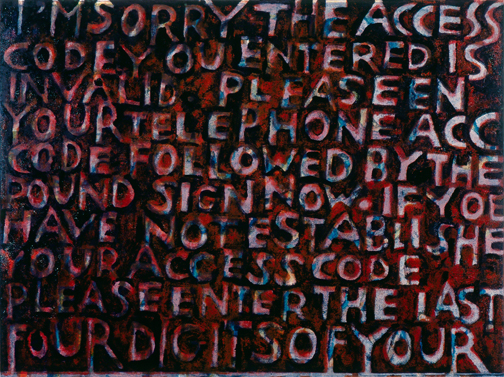 I'M SORRY THE ACCESS
CODE YOU ENTERED IS
INVALID. PLEASE EN
YOUR TELEPHONE ACC
CODE FOLLOWED BY THE
POUND SIGN NOW. IF YOU
HAVE NOT ESTABLISHE
YOUR ACCESS CODE
PLEASE ENTER THE LAST
FOUR DIGITS OF YOUR